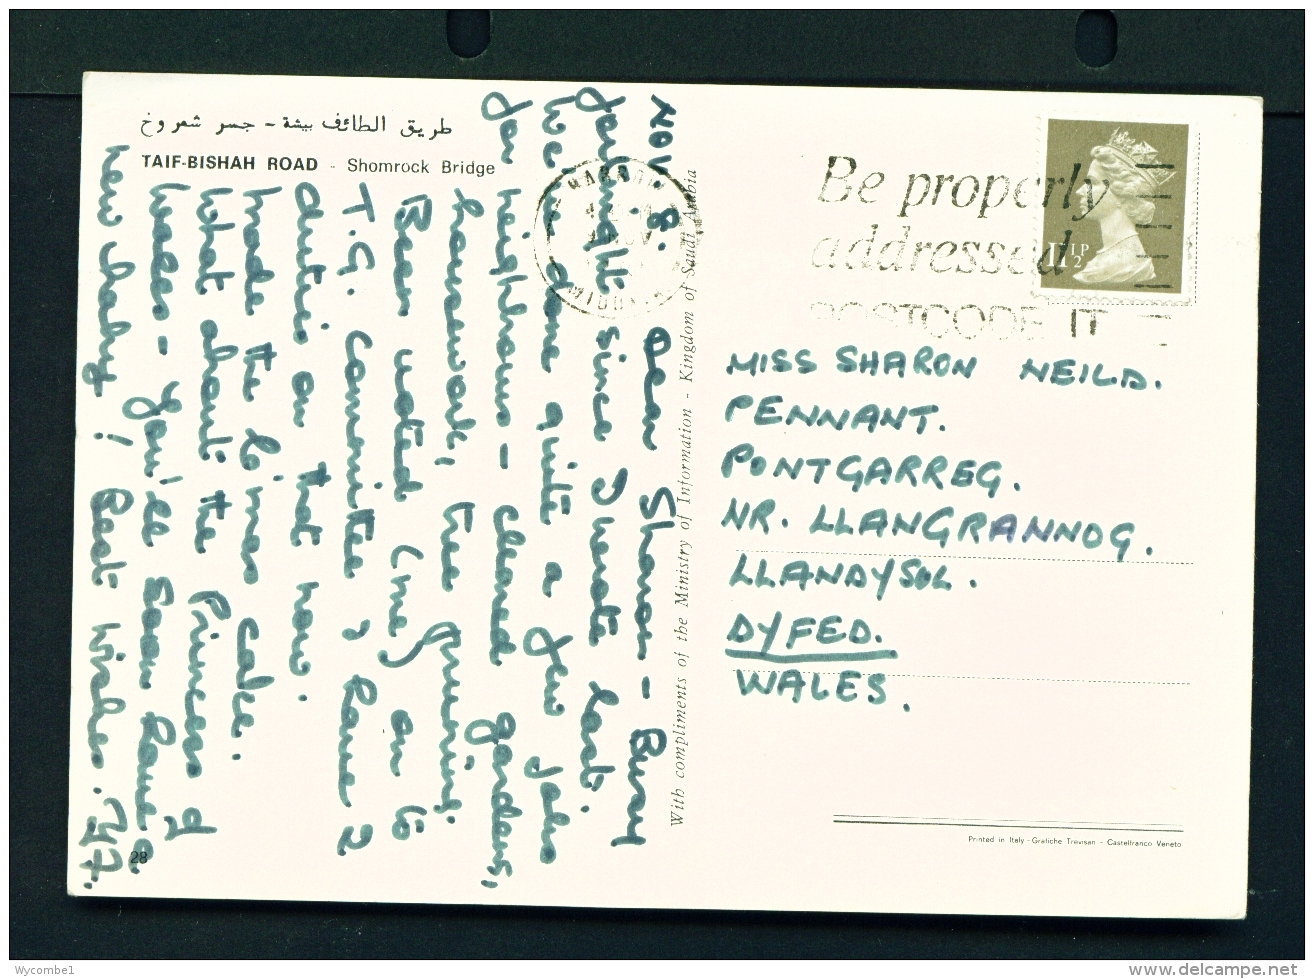 طريق الطائف بيشة - جسر شعروخ
TAIF-BISHAH ROAD - Shomrock Bridge
NOV 8. Dear Sharon - Busy
fortnight since I wrote last.
We've done quite a few jobs
for neighbours - cleaned gardens,
housework, tree pruning.
Been voted (me) on to
T.G. Committee & have 2
duties on that now.
made the Xmas cake.
What about the Princess of
Wales - you'll soon have a
new baby! Best wishes.
With compliments of the Ministry of Information - Kingdom of Saudi Arabia
NOV
Be properly
addressed
POSTCODE IT
11½P
MISS SHARON NEILD.
PENNANT.
PONTGARREG.
NR. LLANGRANNOG.
LLANDYSUL.
DYFED.
WALES.
Printed in Italy - Grafiche Trevisan - Castelfranco Veneto
28
Wycombe1
www.delcampe.net